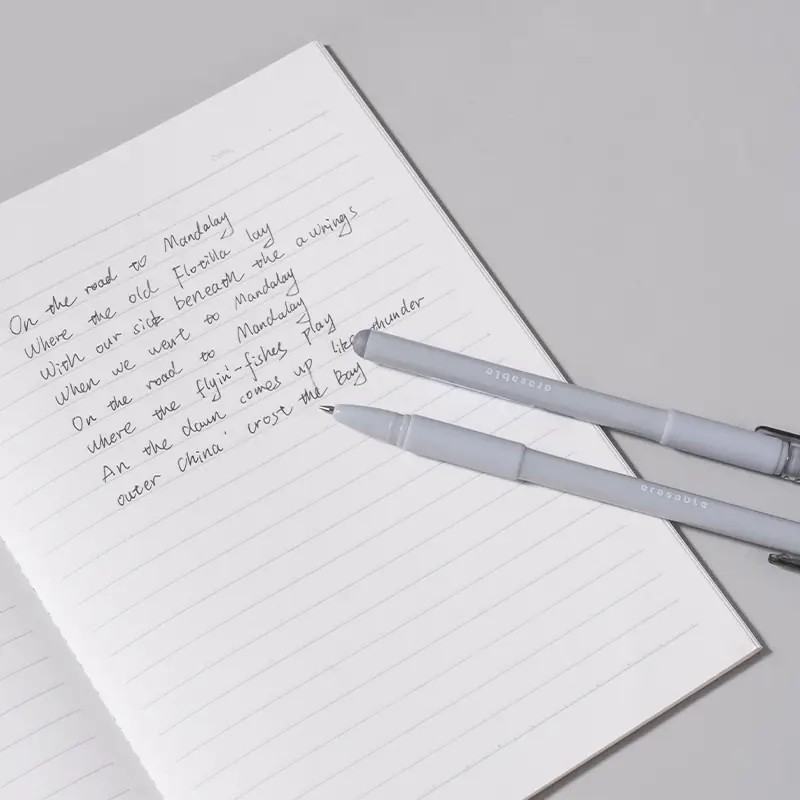 On the road to Mandalay
Where the old Flotilla lay
With our sick beneath the awnings
When we went to Mandalay
On the road to Mandalay
where the flyin'-fishes play
An the dawn comes up like thunder
outer China' crost the Bay
erasable
erasable